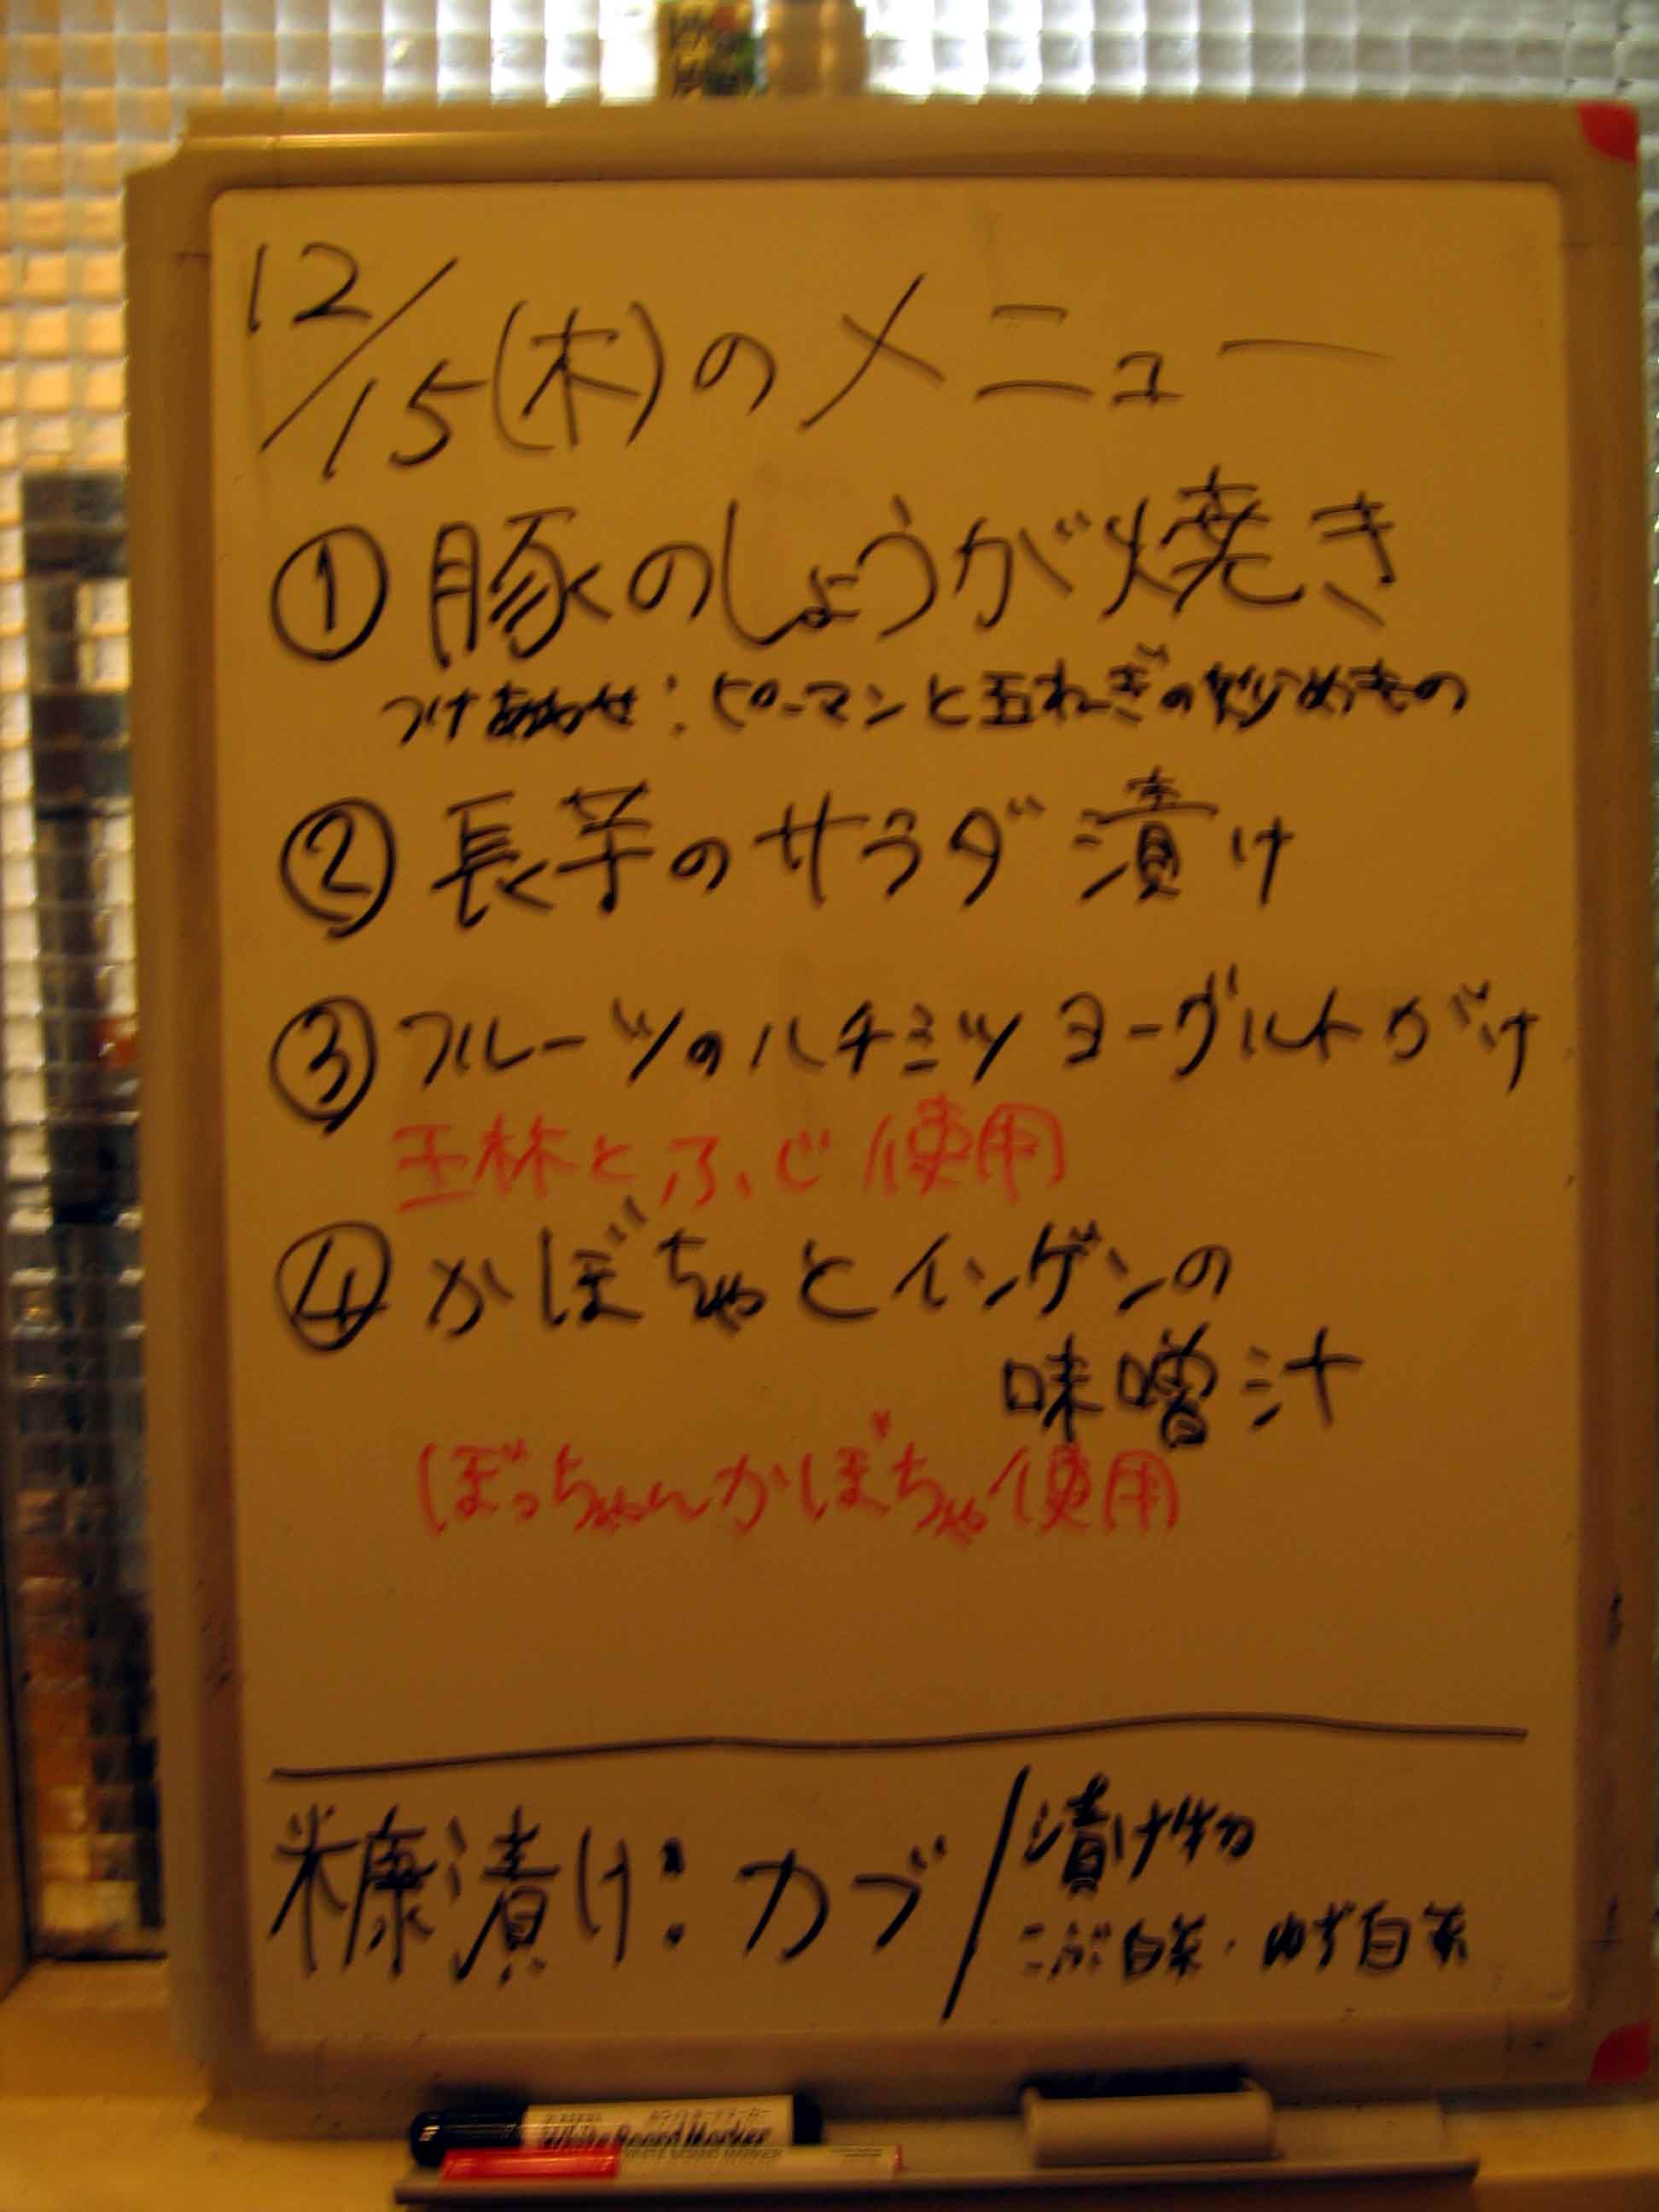 12/15(木)のメニュー
①豚のしょうが焼き
つけあわせ:ピーマンと玉ねぎの炒めもの
②長芋のサラダ漬け
③フルーツのハチミツヨーグルトがけ
王林とふじ使用
④かぼちゃとインゲンの
味噌汁
ぼっちゃんかぼちゃ使用
糠漬け:カブ/漬け物
こぶ白菜・ゆず白菜
White Board Marker